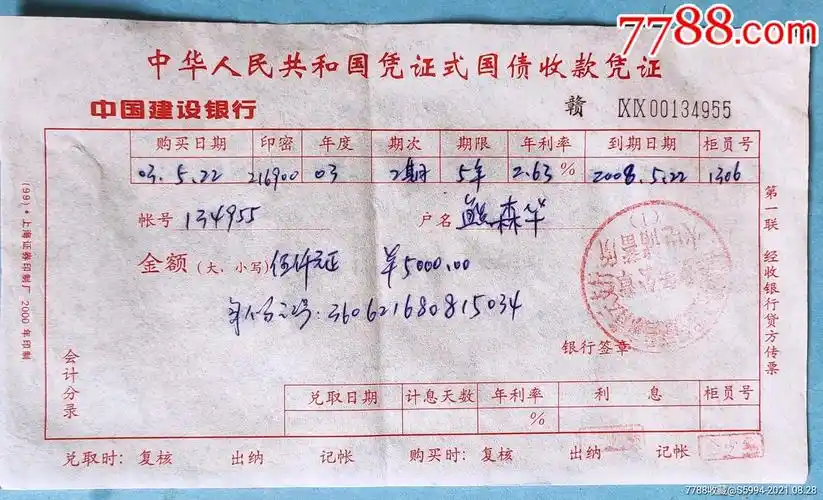 7788.com
中华人民共和国凭证式国债收款凭证
中国建设银行 赣 IXIX00134955
购买日期 印密 年度 期次 期限 年利率 到期日期 柜员号
03.5.22 216900 03 2期 5年 2.63% 2008.5.22 1306
帐号 134955 户名 熊森华
金额(大、小写) 伍仟元正 ¥5000.00
身份证号:360621680815034
银行签章
兑取日期 计息天数 年利率 利息 柜员号
%
会计分录
兑取时: 复核 出纳 记帐 购买时: 复核 出纳 记帐
第一联 经收银行贷方传票
(99)·上海证券印制厂 2000年印制
7788收藏@S5994-2021.08.28